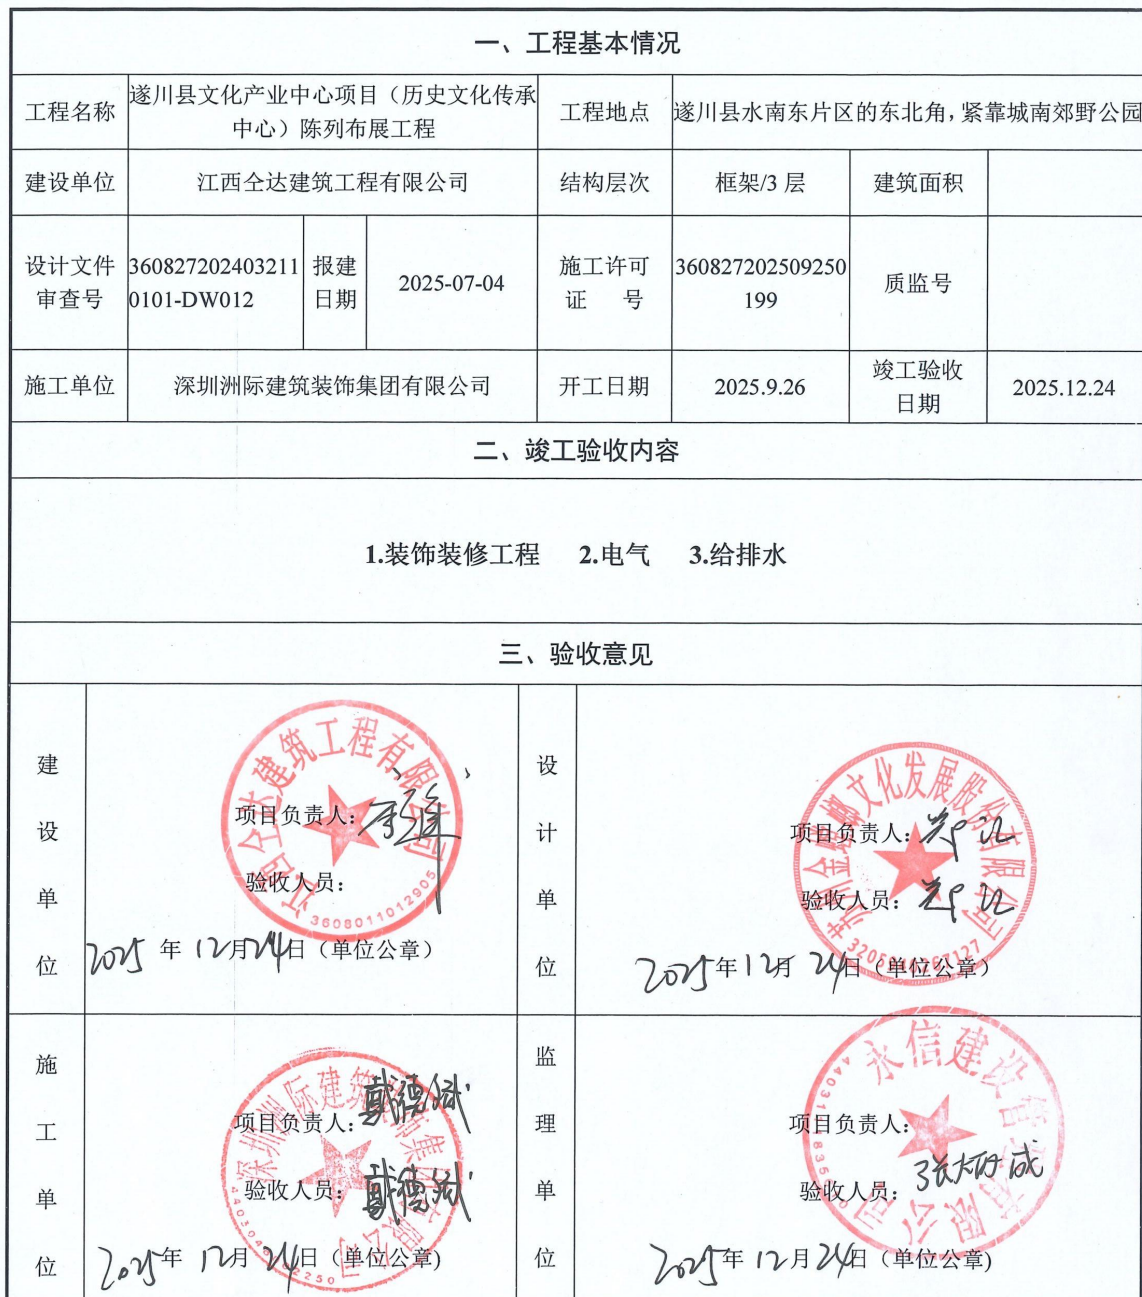 一、工程基本情况
工程名称
遂川县文化产业中心项目（历史文化传承
中心）陈列布展工程
工程地点
遂川县水南东片区的东北角,紧靠城南郊野公园
建设单位
江西仝达建筑工程有限公司
结构层次
框架/3 层
建筑面积
设计文件
审查号
360827202403211
0101-DW012
报建
日期
2025-07-04
施工许可
证 号
360827202509250
199
质监号
施工单位
深圳洲际建筑装饰集团有限公司
开工日期
2025.9.26
竣工验收
日期
2025.12.24
二、竣工验收内容
1.装饰装修工程 2.电气 3.给排水
三、验收意见
建设单位
江西仝达建筑工程有限公司
项目负责人:
验收人员:
3608011012905
2025 年 12月24日（单位公章）
设计单位
苏州金螳螂文化发展股份有限公司
项目负责人:
验收人员:
2025年12月 24日（单位公章）
施工单位
深圳洲际建筑装饰集团有限公司
项目负责人: 戴德斌
验收人员: 戴德斌
2025年 12月 24日（单位公章)
监理单位
永信建设管理有限公司
项目负责人:
验收人员:
2025年 12月24日（单位公章)